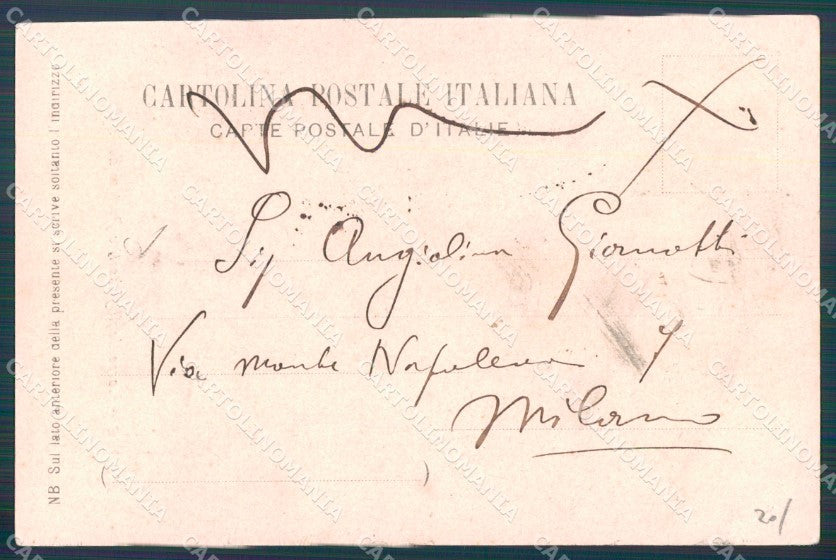 CARTOLINA POSTALE ITALIANA
CARTE POSTALE D'ITALIE
Sig Angiolina Gianotti
Via Monte Napoleone 7
Milano
NB Sul lato anteriore della presente si scrive soltanto l'indirizzo
20/
CARTOLINOMANIA